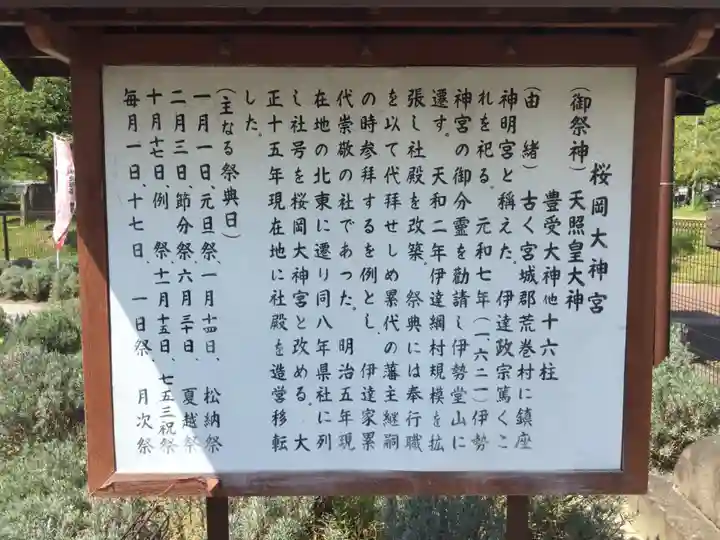 桜岡大神宮
（御祭神）天照皇大神
豊受大神他十六柱
（由緒）古く宮城郡荒巻村に鎮座
神明宮と称えた。伊達政宗篤くこ
れを祀る。元和七年（一、六二一）伊勢
神宮の御分霊を勧請し伊勢堂山に
遷す。天和二年伊達綱村規模を拡
張し社殿を改築。祭典には奉行職
を以て代拝せしめ累代の藩主継嗣
の時参拝するを例とし、伊達家累
代崇敬の社であった。明治五年現
在地の北東に遷り同八年県社に列
し社号を桜岡大神宮と改める。大
正十五年現在地に社殿を造営移転
した。
（主なる祭典日）
一月一日、元旦祭、一月十四日、松納祭
二月三日、節分祭、六月三十日、夏越祭
十月十七日例祭、十一月十五日、七五三祝祭
毎月一日、十七日、一日祭、月次祭